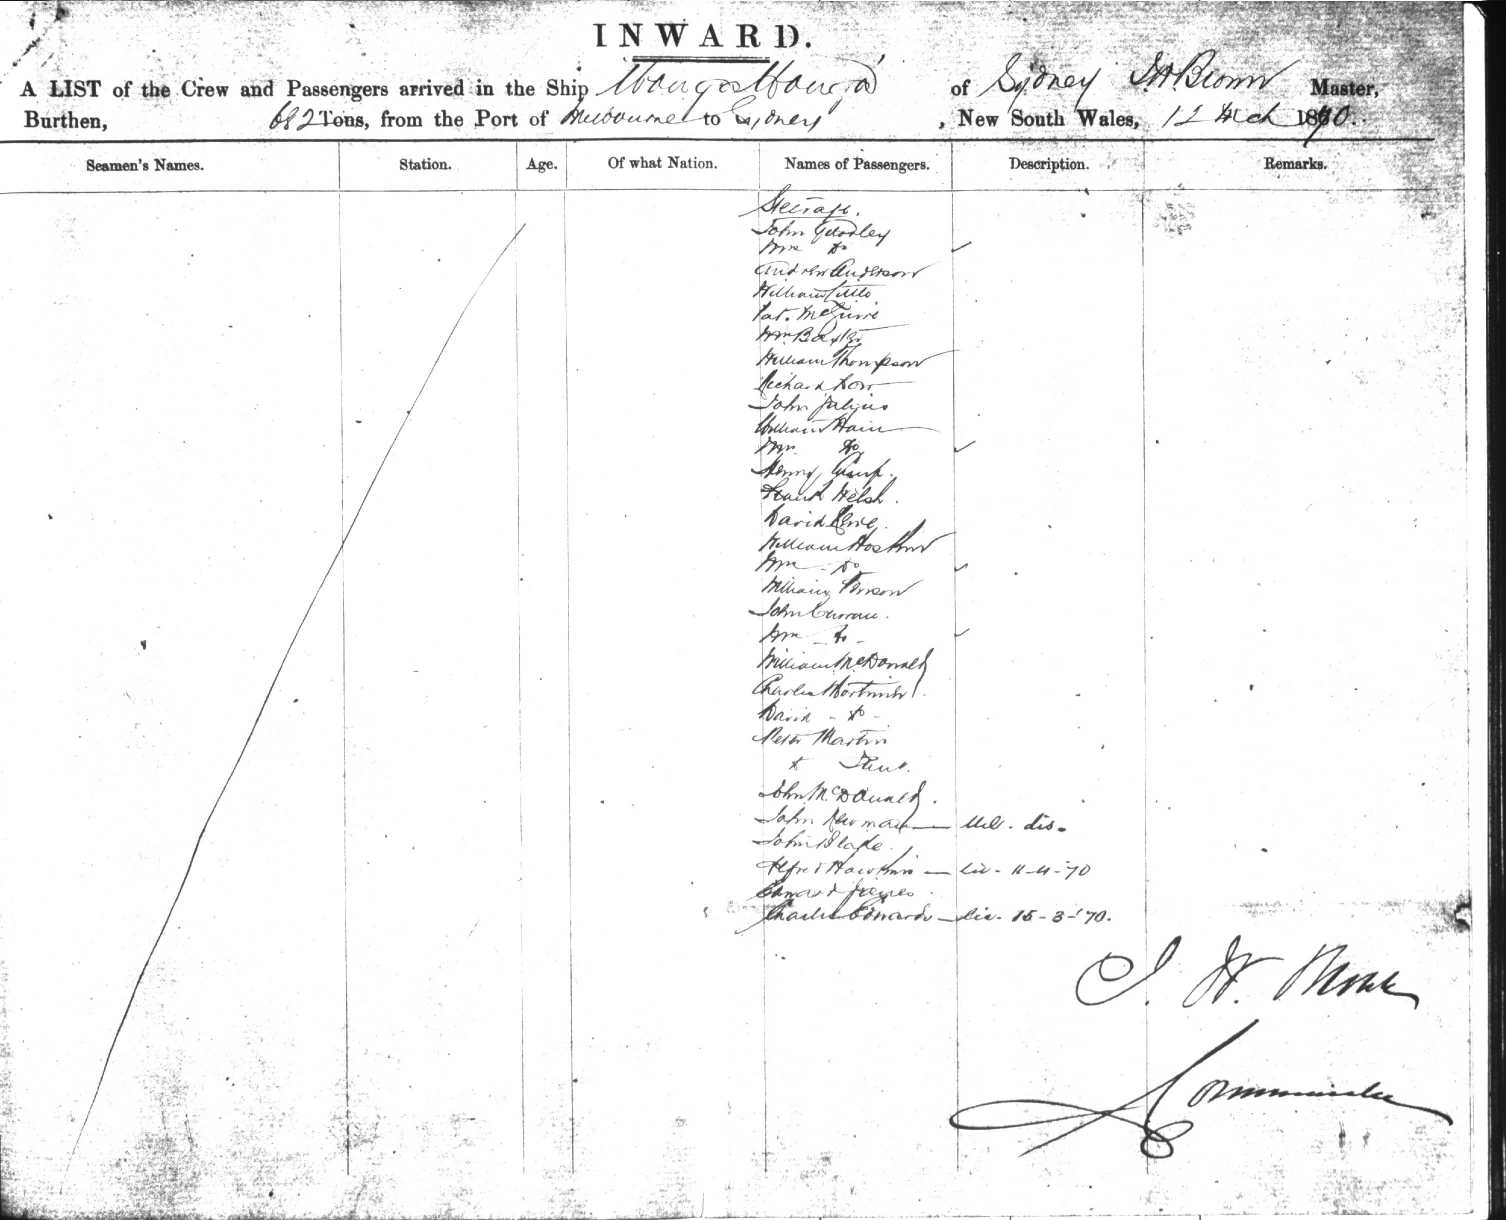 INWARD.
A LIST of the Crew and Passengers arrived in the Ship Wonga Wonga of Sydney J.H. Brown Master,
Burthen, 682 Tons, from the Port of Melbourne to Sydney, New South Wales, 12 Mch 1870.
Seamen's Names. Station. Age. Of what Nation. Names of Passengers. Description. Remarks.
Steerage.
John
Mrs Do
Andrew Anderson
William Little
Pat. McGuire
Wm Baxter
William Thompson
Richard
John
William Hain
Mrs. Do
Henry
Frank Welsh.
David
William Hoskins
Mrs - Do
William
John Curran.
Mrs - Do -
William McDonald
Charles Mortimer
David - Do -
Peter Martin
John McDonald.
John Newman — dis.
John Blake.
Alfred Hawkins — Liv. 11-4-70
Edward James.
Charles Edwards — Liv. 15-3-'70.
J. H.
Commander